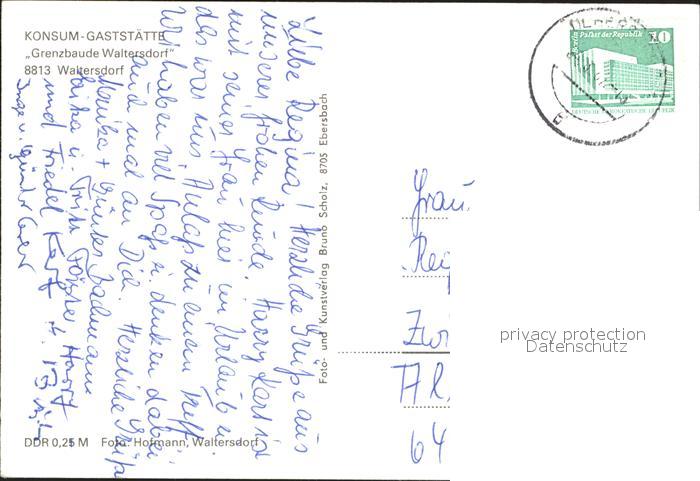 KONSUM-GASTSTÄTTE
„Grenzbaude Waltersdorf"
8813 Waltersdorf
Liebe Regina! Herzliche Grüße aus
unserer frohen Runde. Harry Karf ist
mit seiner Frau hier im Urlaub u.
das war uns Anlaß zu einem Treff.
Wir haben viel Spaß u. denken dabei
auch mal an Dich. Herzliche Grüße
Monika + Günter Bachmann
u. Fritz Förster Harry
und Friedel Karf u.
Inge u. Günter
Foto- und Kunstverlag Bruno Scholz, 8705 Ebersbach
DDR 0,25 M Foto: Hofmann, Waltersdorf
Berlin
Palast der Republik
10
DEUTSCHE DEMOKRATISCHE REPUBLIK
Frau
Reg
Zwi
64
privacy protection
Datenschutz